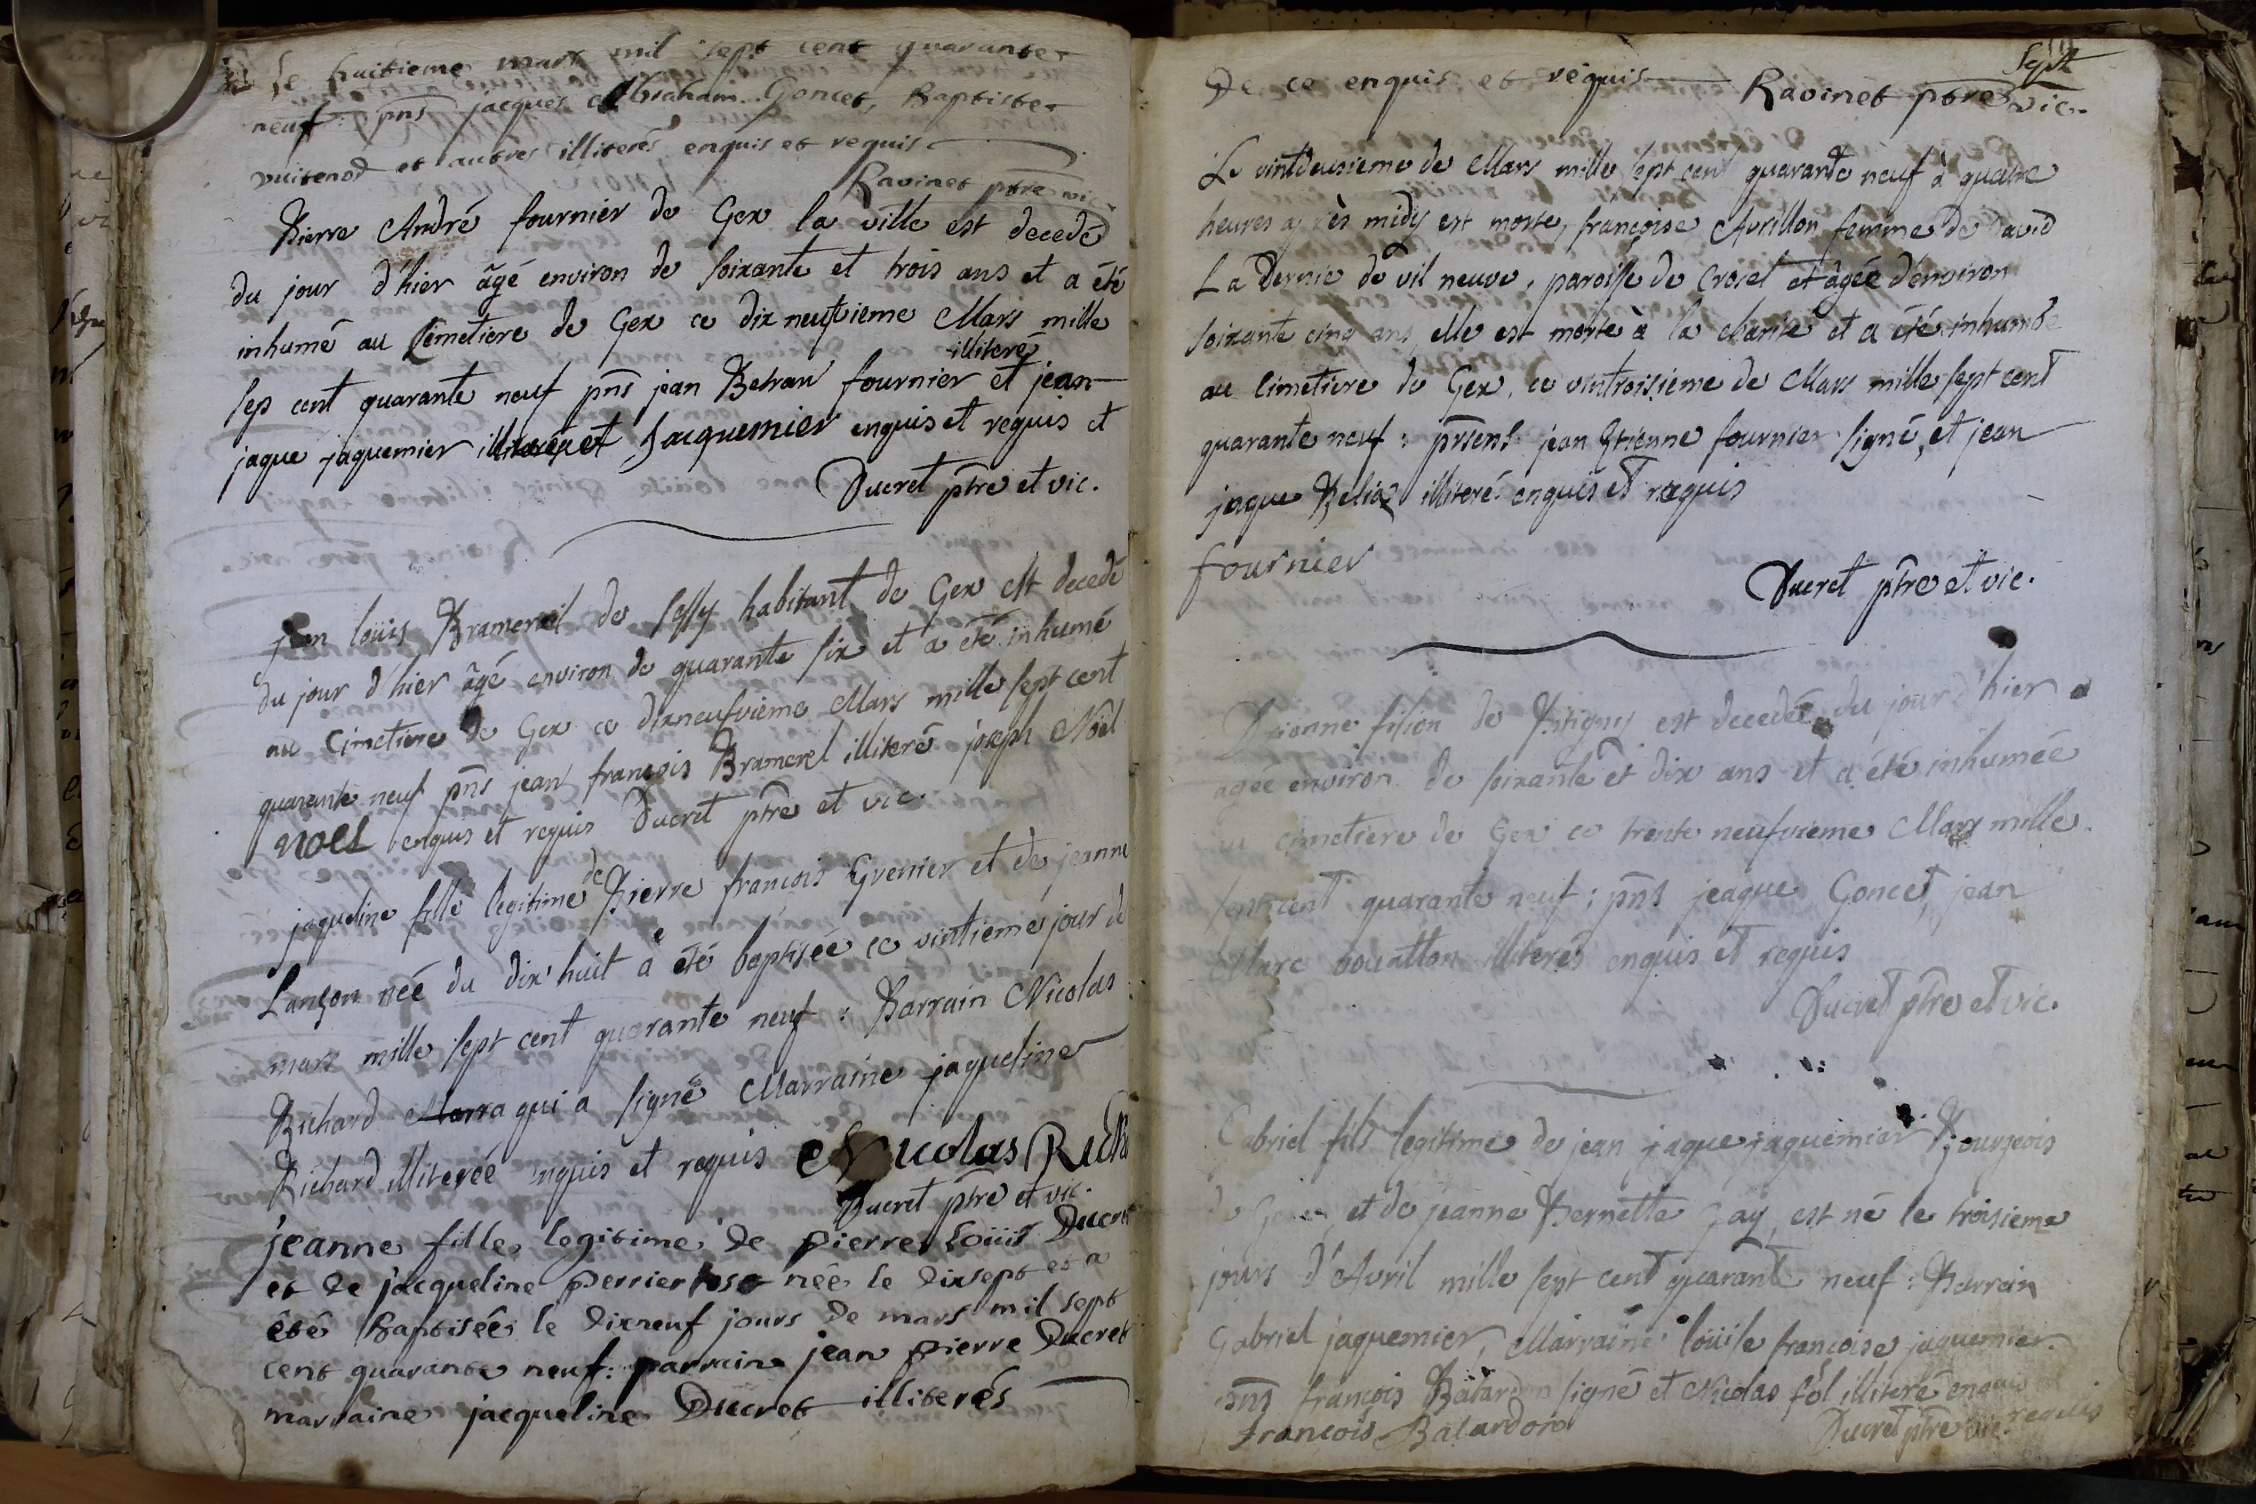 Le huitieme mars mil sept cent quarante
neuf: pns jacques Abraham Goncet, Baptiste
vuitenod et autres illiterés enquis et requis
Ravinet ptre vic
Pierre André fournier de Gex la ville est decedé
du jour d'hier âgé environ de soixante et trois ans et a été
inhumé au Cimetiere de Gex ce dix neufvieme Mars mille
illiteré
sep cent quarante neuf pns jean Betran fournier et jean
jaque jaquemier et Jacquemier enquis et requis et
Ducret ptre et vic.
jean loüis Bramerel de habitant de Gex est decedé
du jour d'hier âgé environ de quarante six et a été inhumé
au Cimetiere de Gex ce dixneufvieme Mars mille sept cent
quarante neuf pns jean françois Bramerel illiteré joseph Noël
noel enquis et requis Ducret ptre et vic.
jaqueline fille legitime de Pierre françois Grenier et de jeanne
Lançon née du dix huit a été baptisée ce vintieme jour de
mars mille sept cent quarante neuf: Parrain Nicolas
Richard Marra qui a signé Marraine jaqueline
Richard illiterée enquis et requis Nicolas Richa
Ducret ptre et vic.
jeanne fille legitime de pierre Loüis Ducret
et de jacqueline perrier née le dixsept et a
été Baptisée le dixneuf jours de mars mil sept
cent quarante neuf: parrain jean pierre Ducret
marraine jacqueline Ducret illiterés
Sept
De ce enquis et requis Ravinet ptre vic.
Le vintdeusieme de Mars mille sept cent quarante neuf à quatre
heures après midy est morte, françoise Avrillon femme de David
La Dernie de vil neuve, paroisse de Croset et âgée d'environ
soixante cinq ans, elle est morte à la charité et a été inhumée
au Cimetiere de Gex, ce vintroisieme de Mars mille sept cent
quarante neuf: prsent jean Etienne fournier signé, et jean
jaque illiteré enquis et requis
fournier
Ducret ptre et vic.
de Pitigny est decedée du jour d'hier
agée environ de soixante et dix ans et a été inhumée
au cimetiere de Gex ce trente neufvieme Mars mille
sept cent quarante neuf; pns jeaque Goncet, jean
Marc illiterés enquis et requis
Ducret ptre et vic.
Gabriel fils legitime de jean jaque jaquemier Bourgeois
de Gex, et de jeanne Pernette Gay, est né le troisieme
jours d'Avril mille sept cent quarante neuf: Parrain
Gabriel jaquemier, Marraine loüise françoise jaquemier.
pns françois Balardon signé et Nicolas fol illiteré enquis
requis
francois Balardon Ducret ptre vic.